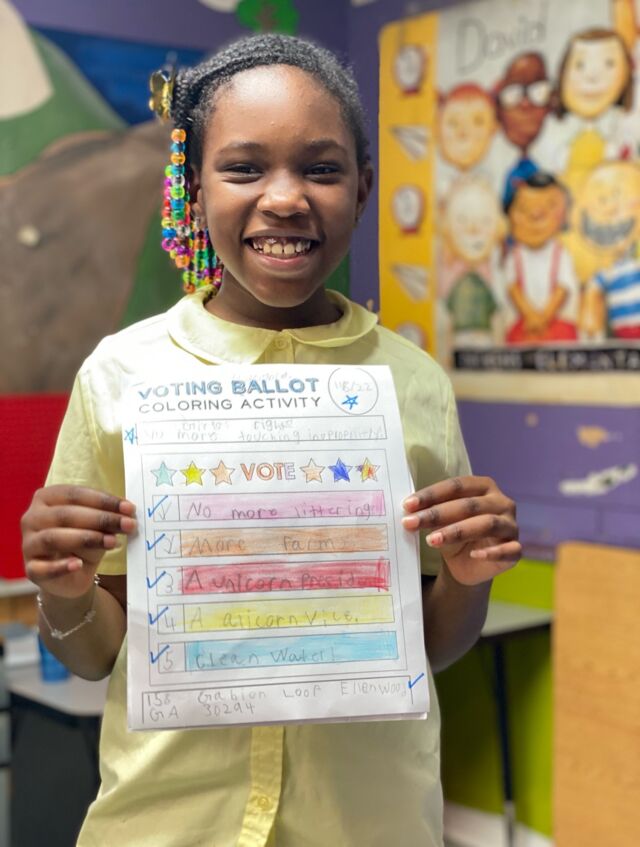 David
VOTING BALLOT
COLORING ACTIVITY
rights
No more touching
VOTE
1 No more littering
2 More farms
3 A unicorn Presid
4 A alicorn Vice.
5 Clean Water!
158 Gabion Loop Ellenwood
GA 30294